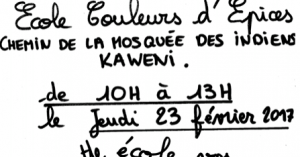 Ecole Couleurs d'Epices
CHEMIN DE LA MOSQUÉE DES INDIENS
KAWENI.
de 10H à 13H
le Jeudi 23 février 2017
école